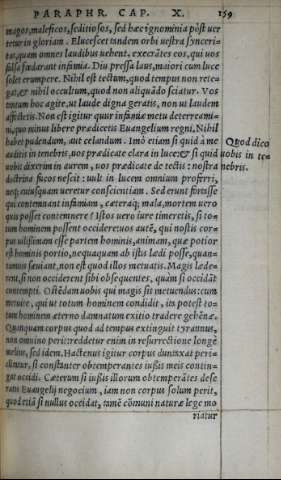 PARAPHR. CAP. X. 159
magos, maleficos, seditiosos, sed hæc ignominia pòst uer
tetur in gloriam. Elucescet tandem orbi uestra synceri-
tas, quam omnes laudibus uehent, execrãtes eos, qui uos
falsa fœdarant infamia. Diu pressa laus, maiori cum luce
solet erumpere. Nihil est tectum, quod tempus non rete-
gat, & nihil occultum, quod non aliquãdo sciatur. Vos
tantum hoc agite, ut laude digna geratis, non ut laudem
affectetis. Non est igitur quur infamiæ metu deterreami-
ni, quo minus libere prædicetis Euangelium regni. Nihil
habet pudendum, aut celandum. Imò etiam si quid à me
auditis in tenebris, uos prædicate clara in luce: & si quid
uobis dixerim in aurem, uos prædicate de tectis: nostra
doctrina fucos nescit: uult in lucem omnium proferri,
neq; cuiusquam ueretur conscientiam. Sed erunt fortisse
qui contemnant infamiam, cæteraq; mala, mortem uero
quis posset contemnere? Istos uero iure timeretis, si to-
tum hominem possent occidere: uos autẽ, qui nostis cor-
pus uilissimam esse partem hominis, animam, quæ potior
est hominis portio, nequaquam ab istis lædi posse, quan-
tumuis sæuiant, non est quod illos metuatis. Magis læde-
rent, si non occiderent sibi obsequentes, quàm si occidãt
contempti. Ostẽdam uobis qui magis sit metuendus: eum
metuite, qui ut totum hominem condidit, ita potest to-
tum hominem æterno damnatum exitio tradere gehẽnæ.
Quanquam corpus quod ad tempus extinguit tyrannus,
non omnino perit: reddetur enim in resurrectione longè
melius, sed idem. Hactenus igitur corpus duntaxat peri-
clitur, si constanter obtemperantes iussis meis contin-
gat occidi. Cæterum si iussis illorum obtemperãtes dese
ratis Euangelij negocium, iam non corpus solum perit,
quod etiã si nullus occidat, tamẽ cõmuni naturæ lege mo
riatur
Quod dico
uobis in te-
nebris.